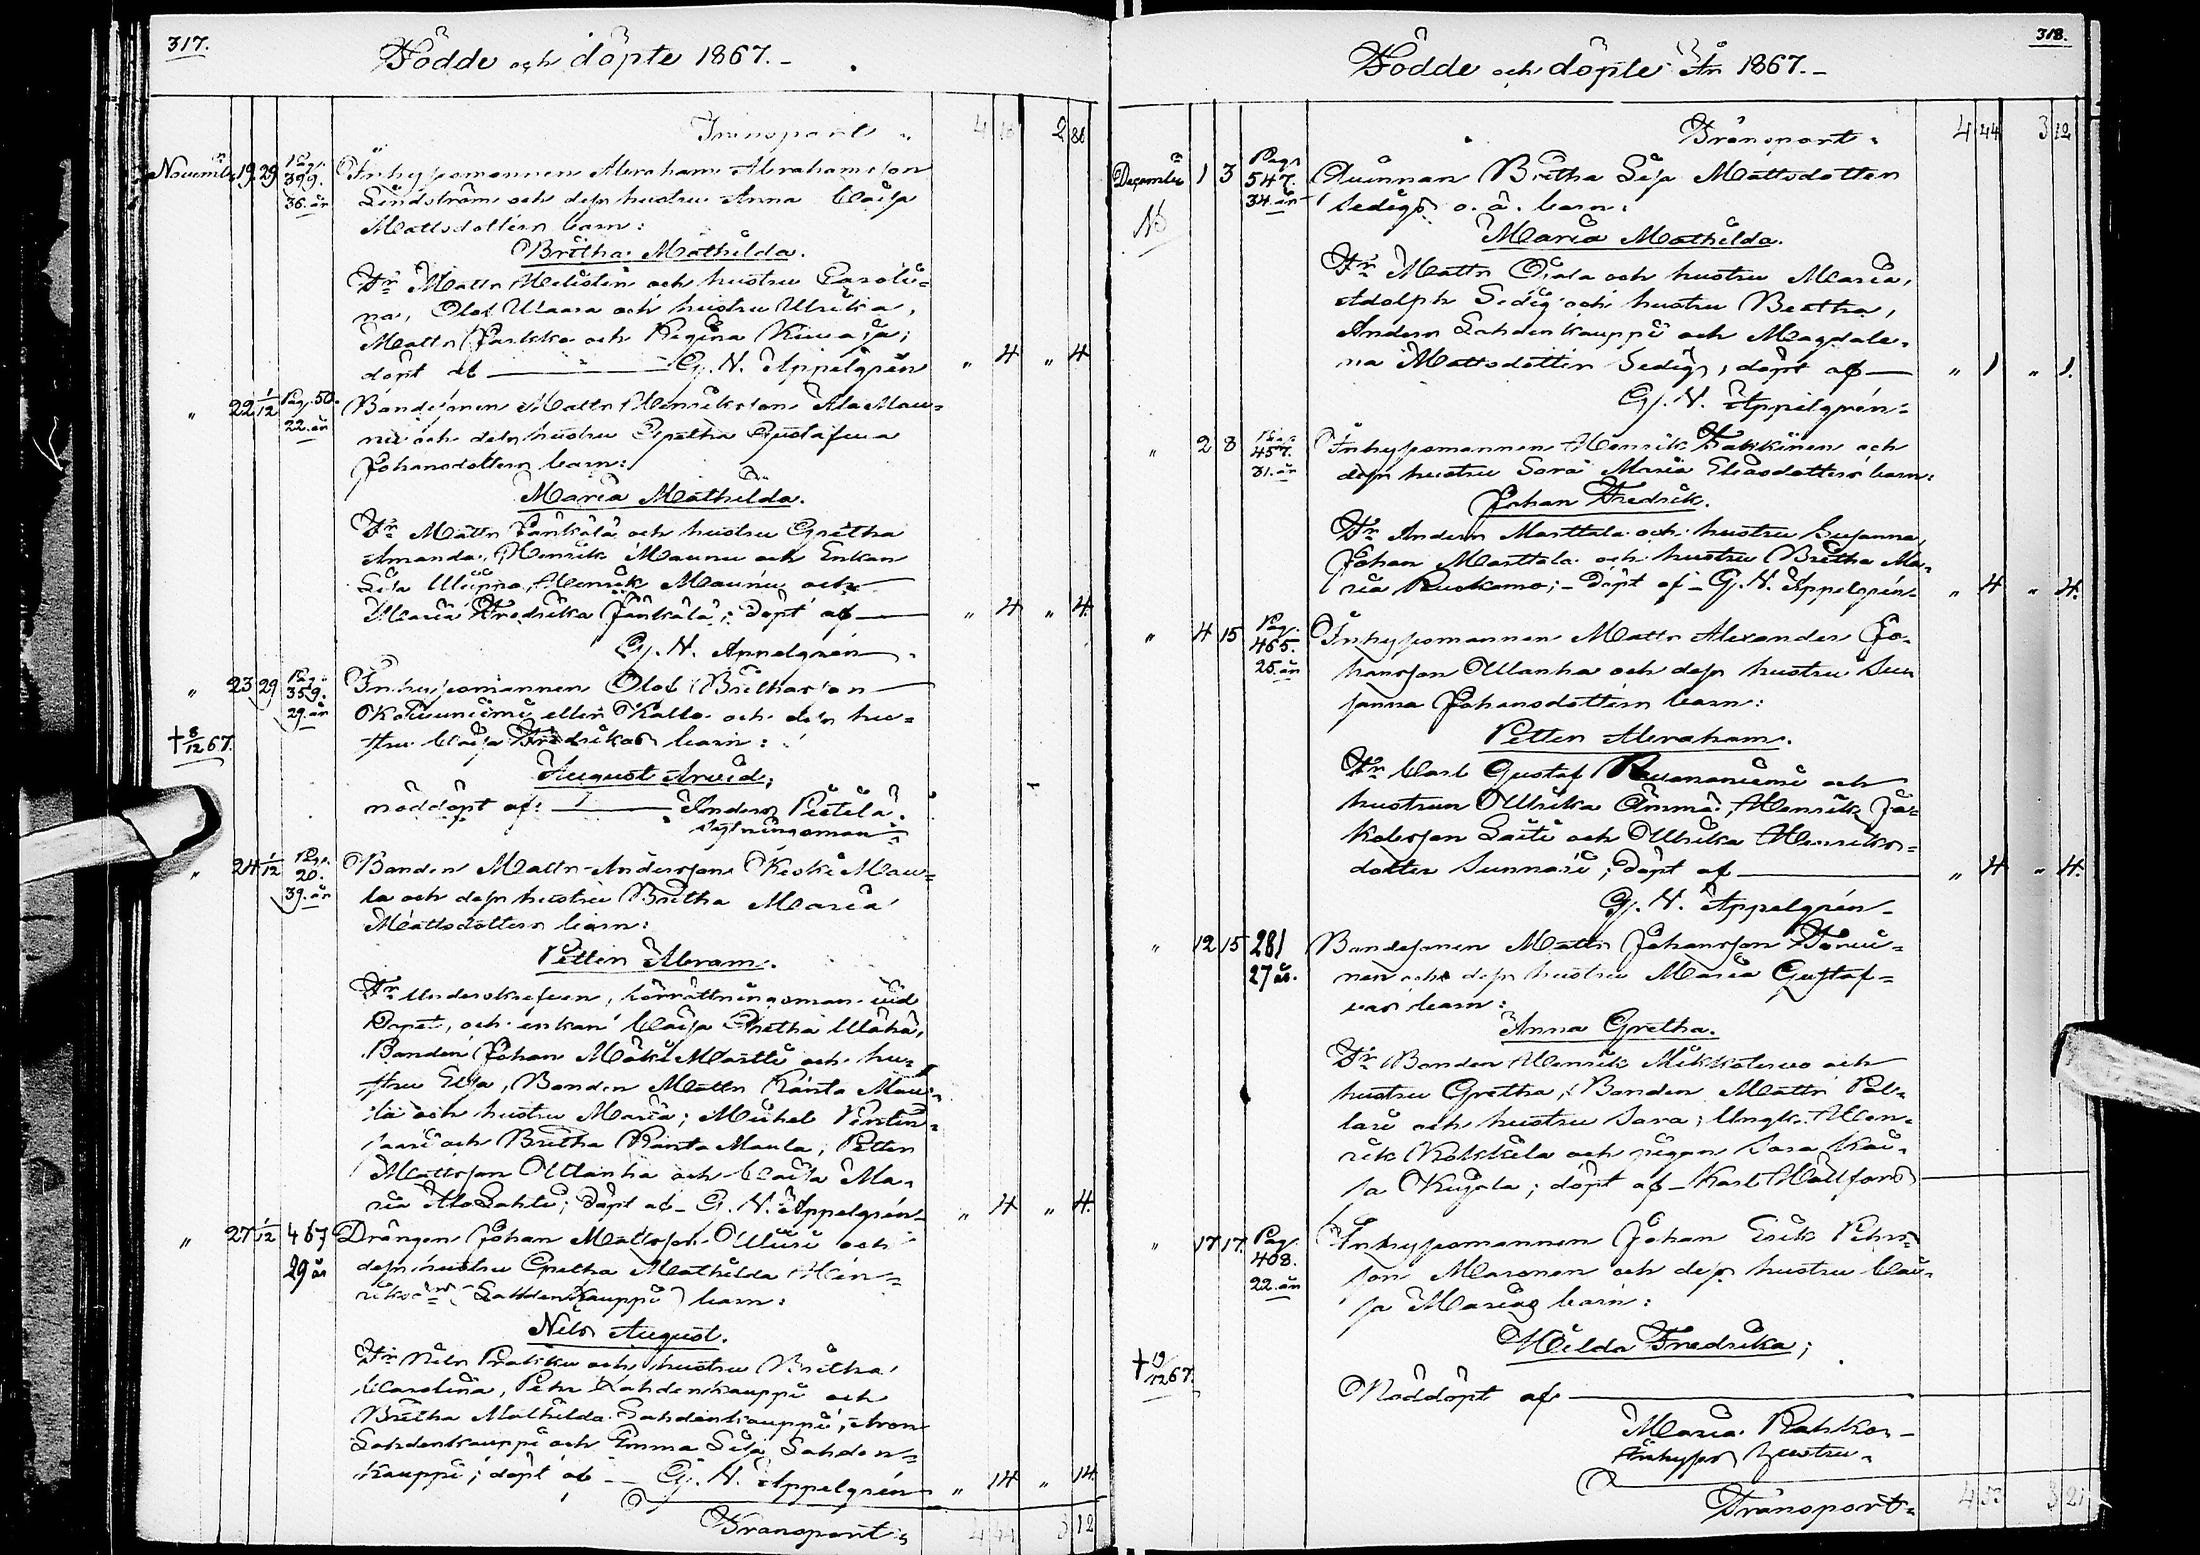 317.
Födde och döpte 1867.-
Transport "
4 16 2 88
November 19 29 Pag. 399. 36. år
Inhysesmannen Abraham Abrahamsson
Lindström och dess hustru Anna Caisa
Mattsdotters barn:
Britha Mathilda.
Fr Matts Helistén och hustru Caroli=
na, Olof Waara och hustru Ulrika,
Matts Parkka och Regina Kiwajä;
döpt af — G. N. Appelgrén
" 4 " 4
" 22 1/12 Pag. 50. 22. år
Bondesonen Matts Henriksson Ala Mau=
nu och dess hustru Gretha Gustafva
Johansdotters barn:
Maria Mathilda.
Fr Matts Jänkälä och hustru Gretha
Amanda, Henrik Maunu och Enkan
Lisa Uusipaa, Henrik Maunu och
Maria Fredrika Jänkälä; döpt af —
" 4 " 4.
Gj. N. Appelgrén
" 23 29 Pag. 359. 29. år
Inhysesmannen Olof Brithasson
Kotiuniemi eller Kallo och dess hu=
† 8/12 67.
stru Caisa Fredrikas barn:
August Arvid;
nöddöpt af: — Anders Pietilä.
sytningsman
" 24 1/12 Pag. 20. 39. år
Bonden Matts Andersson Keski Mau=
la och dess hustru Britha Maria
Mattsdotters barn:
Petter Abram.
Fr Underskrefven, förrättningsman vid
Dopet, och enkan Caisa Gretha Wähä,
Bonden Johan Mäki Martti och hu=
stru Elsa, Bonden Matts Ranta Mau=
la och hustru Maria; Michel Pentin=
saari och Britha Ranta Maula, Petter
Mattsson Ollanha och Caisa Ma=
ria Ala Lahti; döpt af - G. N. Appelgrén
" 4 " 4.
" 27 1/12 467 29 år
Drängen Johan Mattsson Uusi och
dess hustru Gretha Mathilda Hen=
riksdrs (Lahdenkauppi) barn:
Nils August.
Fr Nils Pratiku och hustru Britha
Carolina, Pehr Lahdenkauppi och
Britha Mathilda Lahdenkauppi, Aron
Lahdenkauppi och Emma Lisa Lahden=
kauppi; döpt af — Gj. N. Appelgrén
" 14 " 14.
Transport "
4 44 3 12
318.
Födde och döpte År 1867.-
Transport "
4 44 3 12
December 1 3 Pag. 547. 34. år
Qvinnan Britha Lisa Mattsdotter
Sedigs o. ä. barn:
Maria Mathilda.
Fr Matts Ojala och hustru Maria,
Adolph Sedig och hustru Beatha,
Anders Lahdenkauppi och Magdale=
na Mattsdotter Sedigs, döpt af —
" 1 " 1.
Gj. N. Appelgrén
" 2 8 Pag. 457. 31. år
Inhysesmannen Henrik Takkinen och
dess hustru Sara Maria Eliasdotters barn:
Johan Fredrik.
Fr Anders Marttala och hustru Susanna,
Johan Marttala och hustru Britha Ma=
ria Ruokamo; - döpt af - G. N. Appelgrén
" 4 " 4.
" 4 15 Pag. 465. 25. år
Inhysesmannen Matts Alexander Jo=
hansson Ollanha och dess hustru Su=
sanna Johansdotters barn:
Petter Abraham.
Fr Carl Gustaf Ruonaniemi och
hustrun Ulrika Emma; Henrik Ja=
kobsson Laiti och Ulrika Henriks=
dotter Sunnari; döpt af —
" 4 " 4.
Gj. N. Appelgrén
" 12 15 281 27 år.
Bondesonen Matts Johansson Törmä=
nen och dess hustru Maria Gustaf=
vas barn:
Anna Gretha.
Fr Bonden Henrik Mikkolavuo och
hustru Gretha; Bonden Matts Pal=
lari och hustru Sara; Ungk. Hen=
rik Kokkila och pigan Sara Kai=
sa Kujala; döpt af - Karl Hällfors
" 17 17. Pag. 408. 22. år
Inhysesmannen Johan Erik Pehrs=
son Maronen och dess hustru Cai=
sa Marias barn:
Hilda Fredrika;
† 19/12 67.
Nöddöpt af —
Maria Rahko -
Inhyses hustru.
Transport "
4 53 3 21